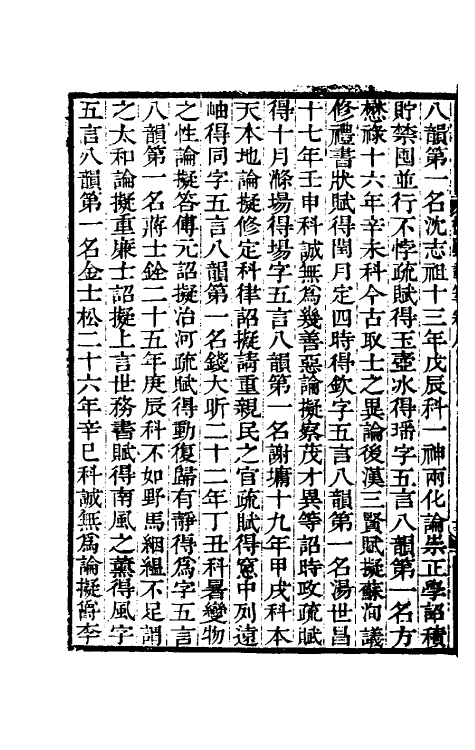 八韻第一名沈志祖十三年戊辰科一神兩化論崇正學詔積
貯禁囤並行不悖疏賦得玉壺水得璠字五言八韻第一名方
懋祿十六年辛未科今古取士之異論後漢三賢賦擬蘇洵議
修禮書狀賦得閏月定四時得欽字五言八韻第一名湯世昌
十七年壬申科誠無為幾善惡論擬察茂才異等詔時政疏賦
得十月滌場得場字五言八韻第一名謝墉十九年甲戌科本
天本地論擬修定科律詔擬請重親民之官疏賦得窻中列遠
岫得同字五言八韻第一名錢大昕二十二年丁丑科暑變物
之性論擬答傅元詔擬治河疏賦得動復歸有靜得為字五言
八韻第一名蔣士銓二十五年庚辰科不如野馬絪縕不足謂
之太和論擬重廉士詔擬上言世務書賦得南風之薰得風字
五言八韻第一名金士松二十六年辛巳科誠無爲論擬爵李